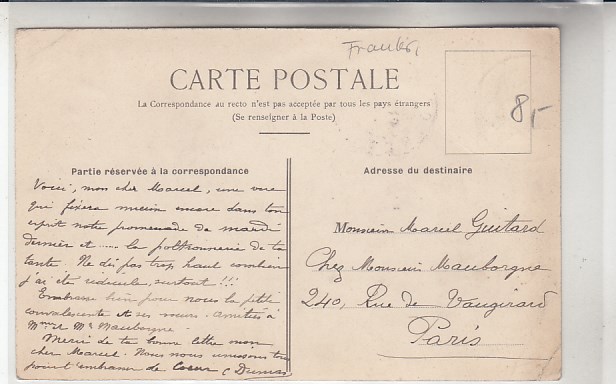 CARTE POSTALE
8,-
La Correspondance au recto n'est pas acceptée par tous les pays étrangers
(Se renseigner à la Poste)
Partie réservée à la correspondance
Voici, mon cher Marcel, une vue
qui fixera mieux encore dans ton
esprit notre promenade de mardi
dernier et ..... la poltronnerie de ta
tante. Ne dis pas trop haut combien
j'ai été ridicule, surtout !!!
Embrasse bien pour nous la petite
convalescente et ses sœurs. Amitiés à
Mme et Mr Mauborgne.
Merci de ta bonne lettre mon
cher Marcel. Nous nous unissons tous
pour t'embrasser de Cœur C Dumas
Adresse du destinaire
Monsieur Marcel Guitard
Chez Monsieur Mauborgne
240, Rue de Vaugirard
Paris